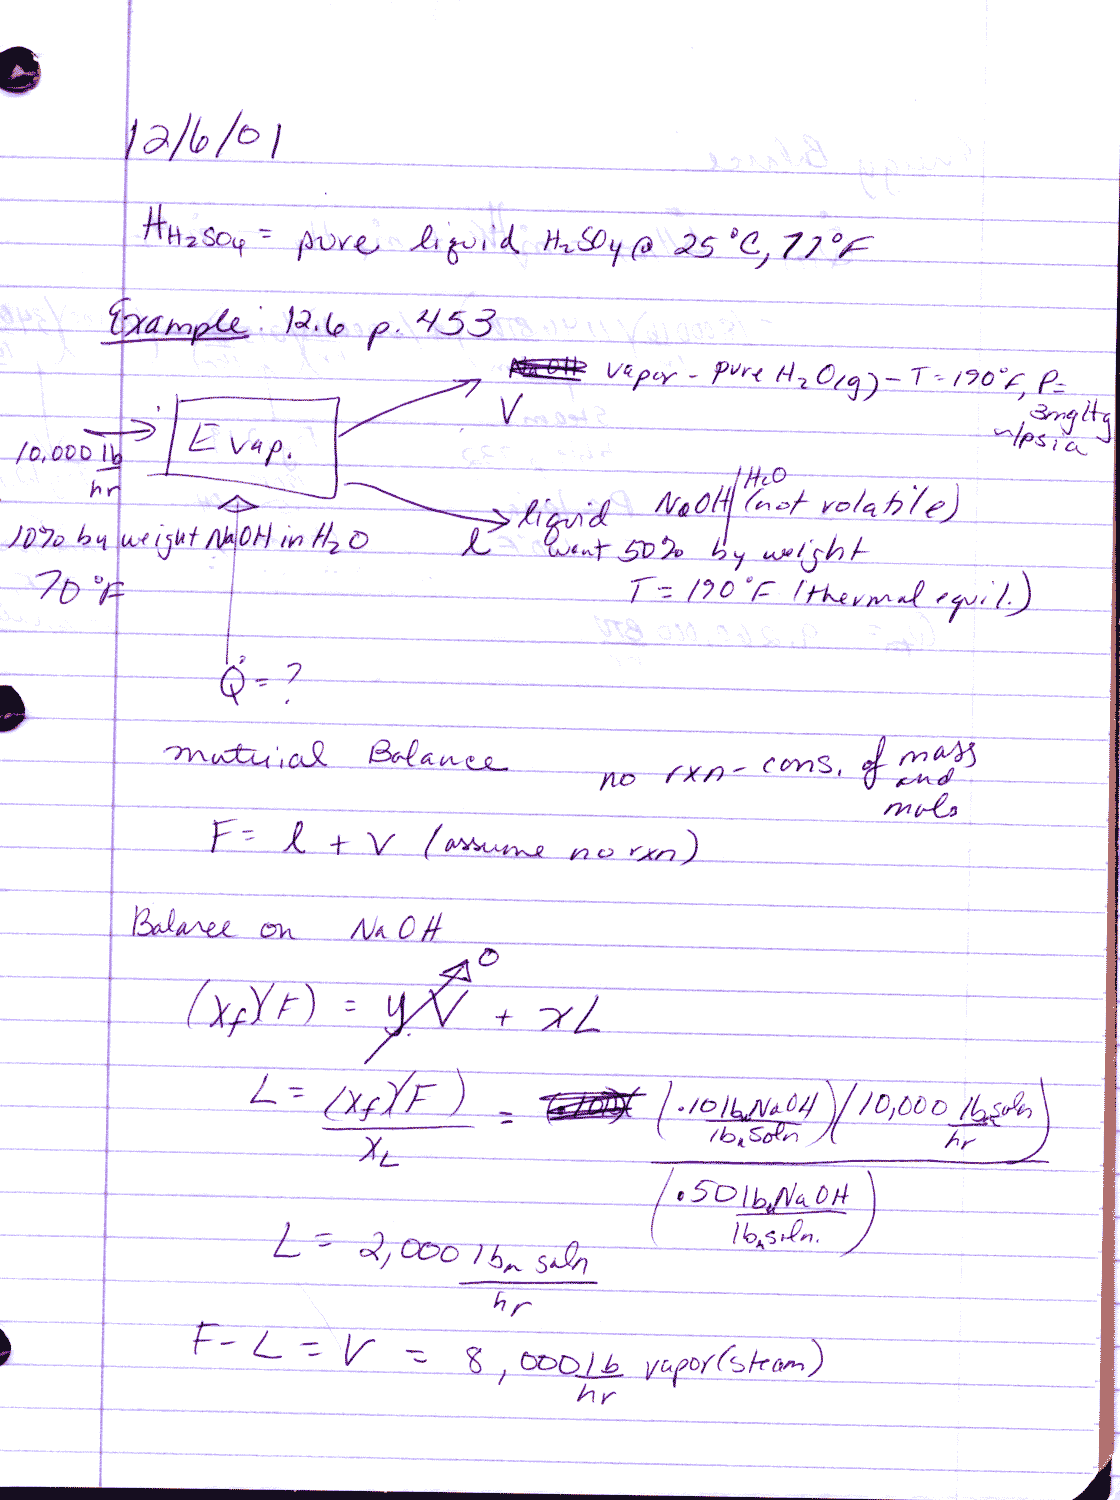 12/6/01
H H₂SO₄ = pure liquid H₂SO₄ @ 25°C, 77°F
Example: 12.6 p. 453
vapor - pure H₂O(g) - T = 190°F, P =
3 mg Hg
V
Evap.
psia
10,000 lb/hr
H₂O
liquid NaOH (not volatile)
10% by weight NaOH in H₂O
l want 50% by weight
70°F
T = 190°F (thermal equil.)
Q̇ = ?
Material Balance no rxn - cons. of mass
and
mols
F = l + V (assume no rxn)
Balance on NaOH
(x_f)(F) = yV→0 + xL
L = (x_f)(F) / x_L = (.10 lbₘ NaOH / lbₘ soln)(10,000 lbₘ soln / hr) / (.50 lbₘ NaOH / lbₘ soln.)
L = 2,000 lbₘ soln / hr
F - L = V = 8,000 lb/hr vapor (steam)